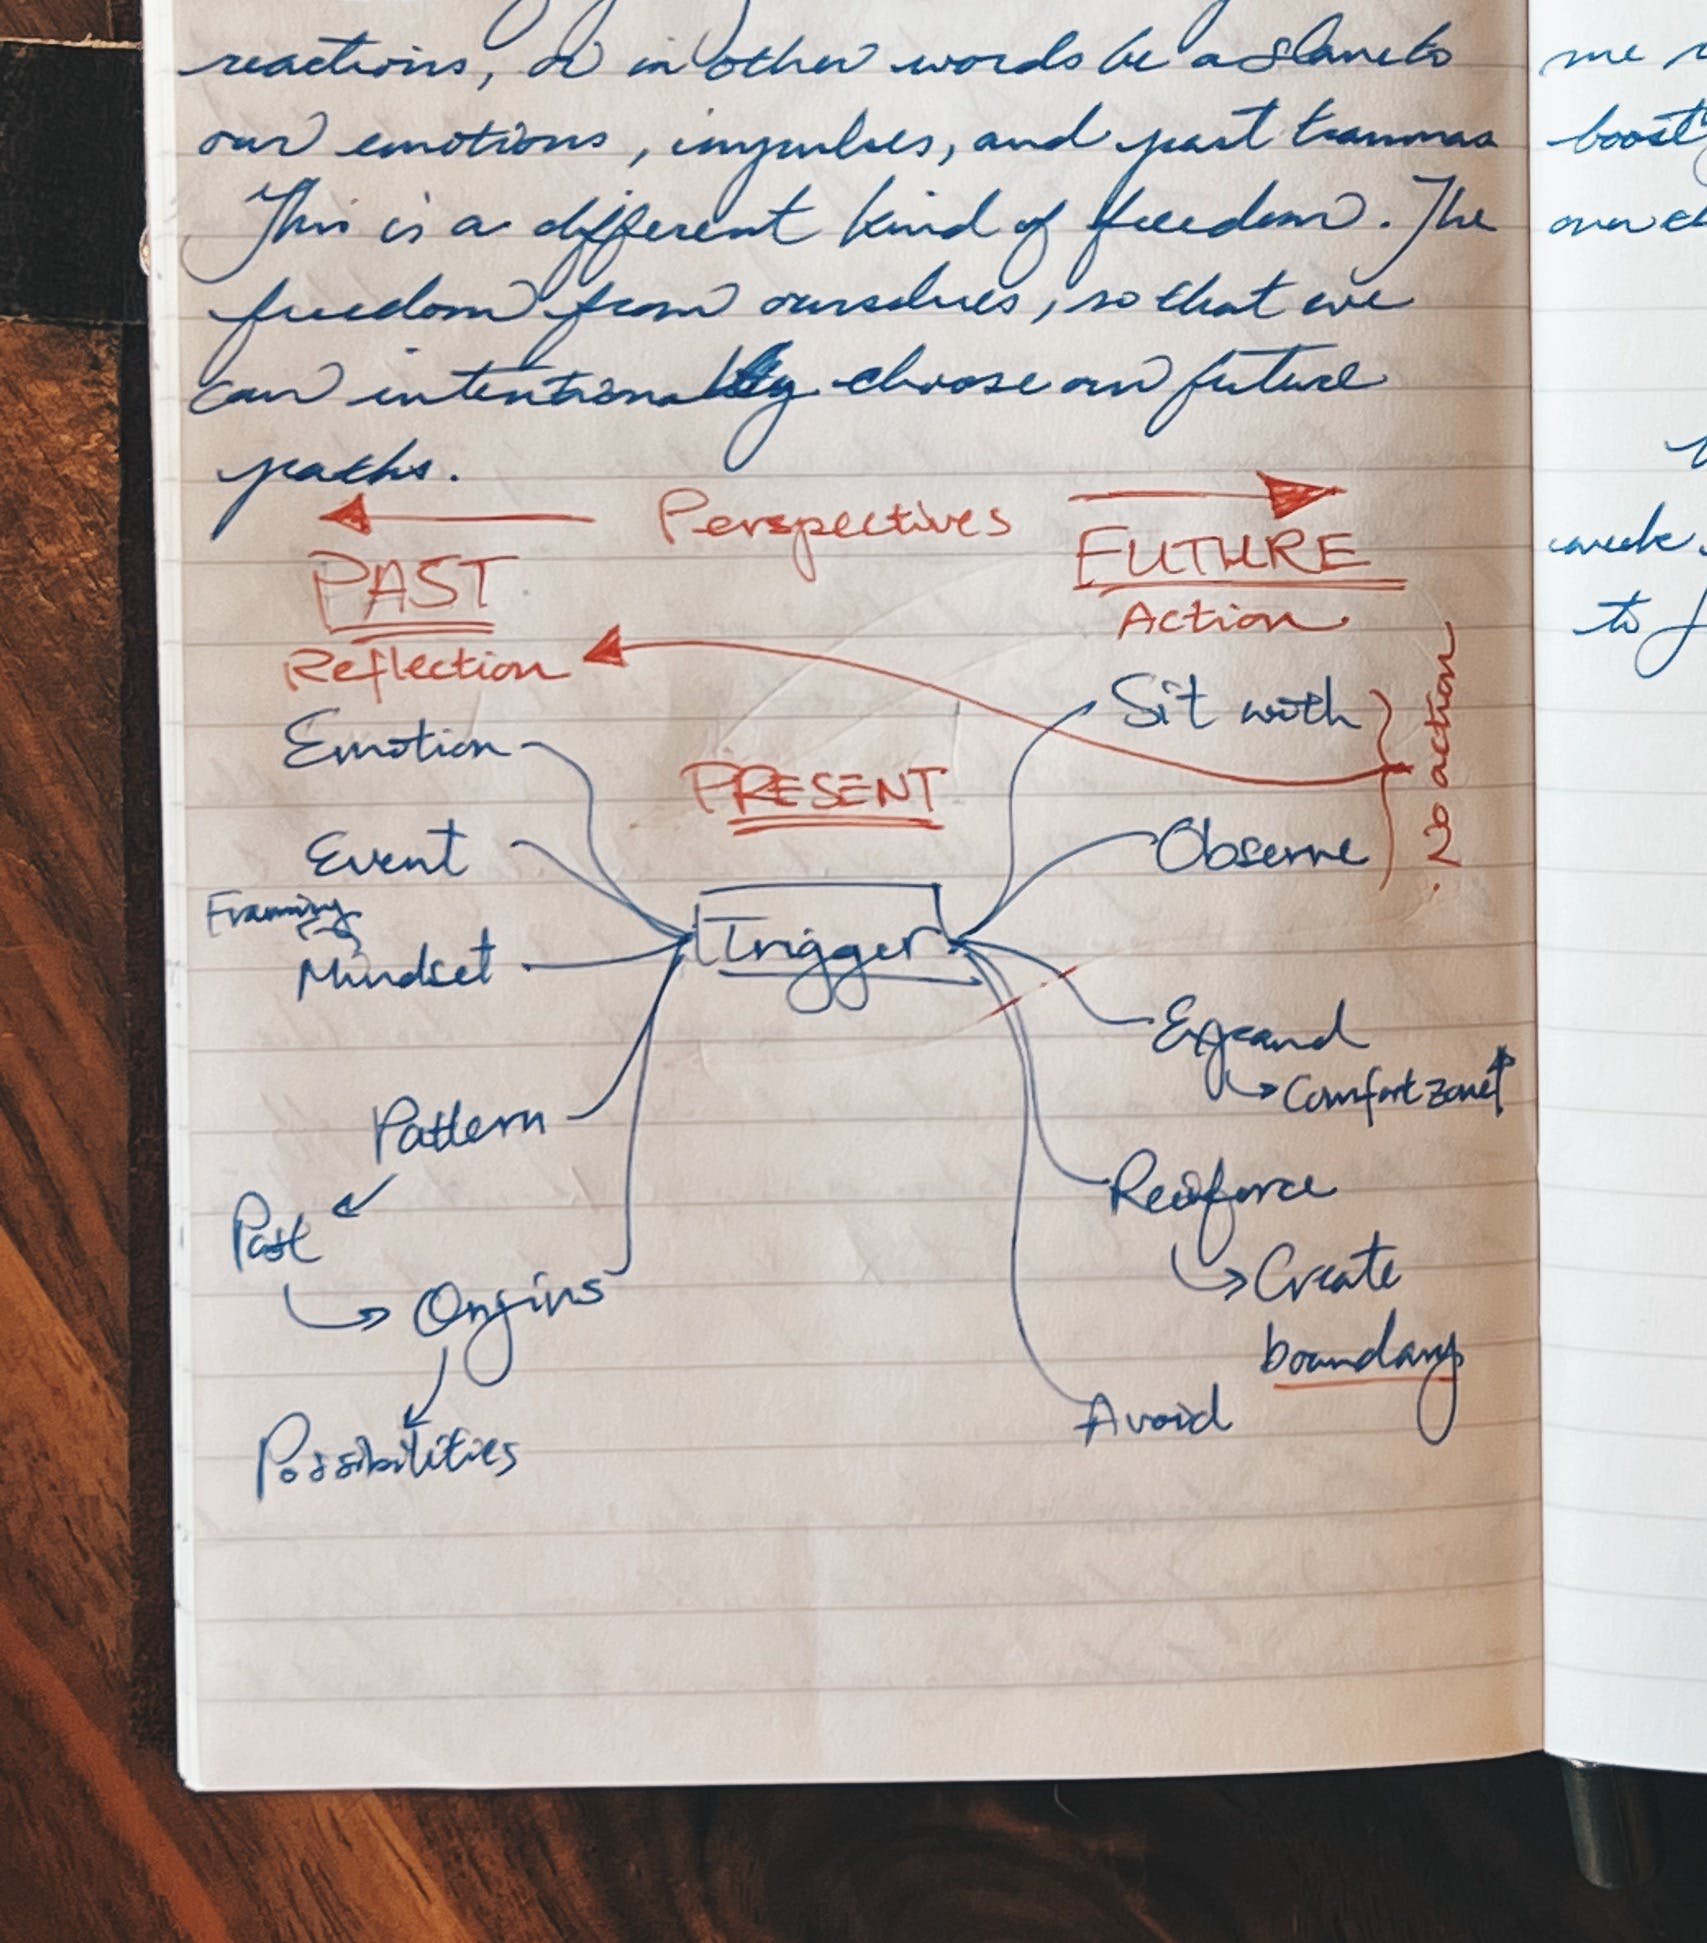 reactions, or in other words be a slave to
our emotions, impulses, and past traumas
This is a different kind of freedom. The
freedom from ourselves, so that we
can intentionally choose our future
paths.
Perspectives
PAST
FUTURE
Reflection
Action
Sit with
Emotion
PRESENT
No action
Event
Observe
Framing
Trigger
Mindset
Expand
Comfort zone
Pattern
Reinforce
Past
Create
Origins
boundary
Avoid
Possibilities
me
boost
week.
to